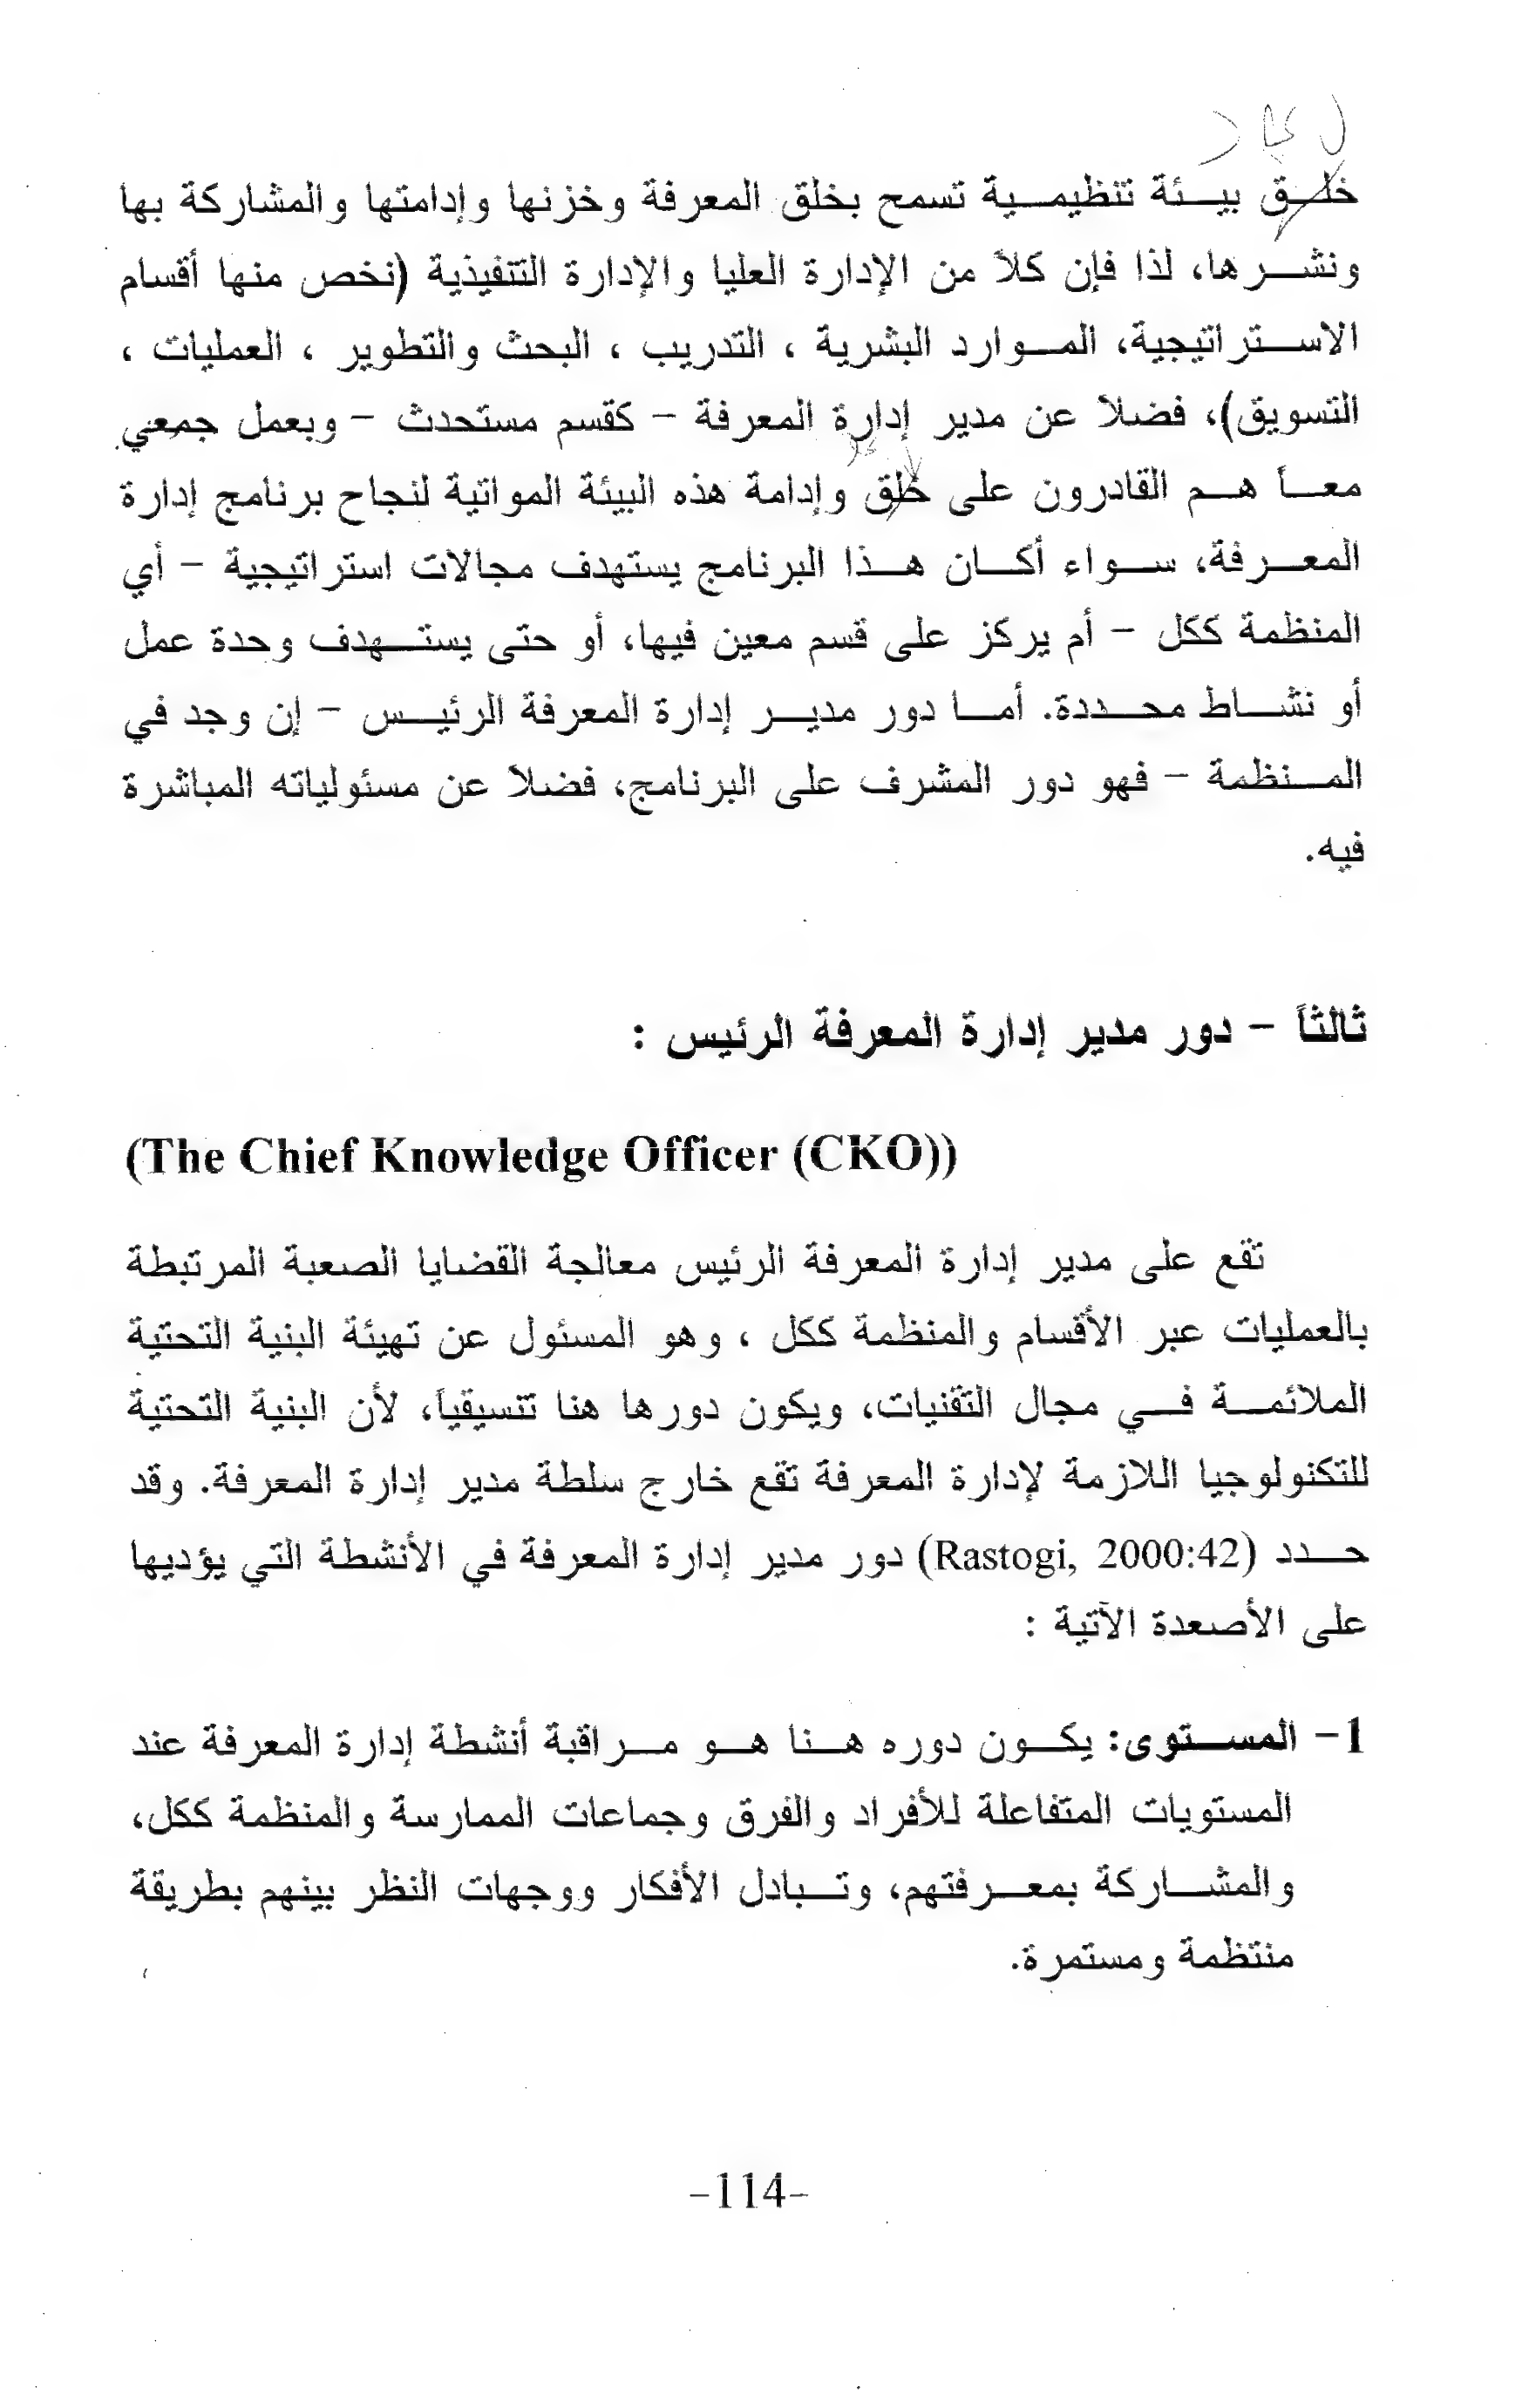 خلق بيئة تنظيمية تسمح بخلق المعرفة وخزنها وإدامتها والمشاركة بها
ونشرها، لذا فإن كلاً من الإدارة العليا والإدارة التنفيذية (نخص منها أقسام
الاستراتيجية، الموارد البشرية ، التدريب ، البحث والتطوير ، العمليات ،
التسويق)، فضلاً عن مدير إدارة المعرفة – كقسم مستحدث – وبعمل جمعي
معاً هم القادرون على خلق وإدامة هذه البيئة المواتية لنجاح برنامج إدارة
المعرفة، سواء أكان هذا البرنامج يستهدف مجالات استراتيجية – أي
المنظمة ككل – أم يركز على قسم معين فيها، أو حتى يستهدف وحدة عمل
أو نشاط محددة. أما دور مدير إدارة المعرفة الرئيس – إن وجد في
المنظمة – فهو دور المشرف على البرنامج، فضلاً عن مسئولياته المباشرة
فيه.
ثالثاً – دور مدير إدارة المعرفة الرئيس :
(The Chief Knowledge Officer (CKO))
تقع على مدير إدارة المعرفة الرئيس معالجة القضايا الصعبة المرتبطة
بالعمليات عبر الأقسام والمنظمة ككل ، وهو المسئول عن تهيئة البنية التحتية
الملائمة في مجال التقنيات، ويكون دورها هنا تنسيقياً، لأن البنية التحتية
للتكنولوجيا اللازمة لإدارة المعرفة تقع خارج سلطة مدير إدارة المعرفة. وقد
حدد (Rastogi, 2000:42) دور مدير إدارة المعرفة في الأنشطة التي يؤديها
على الأصعدة الآتية :
1- المستوى: يكون دوره هنا هو مراقبة أنشطة إدارة المعرفة عند
المستويات المتفاعلة للأفراد والفرق وجماعات الممارسة والمنظمة ككل،
والمشاركة بمعرفتهم، وتبادل الأفكار ووجهات النظر بينهم بطريقة
منتظمة ومستمرة.
-114-